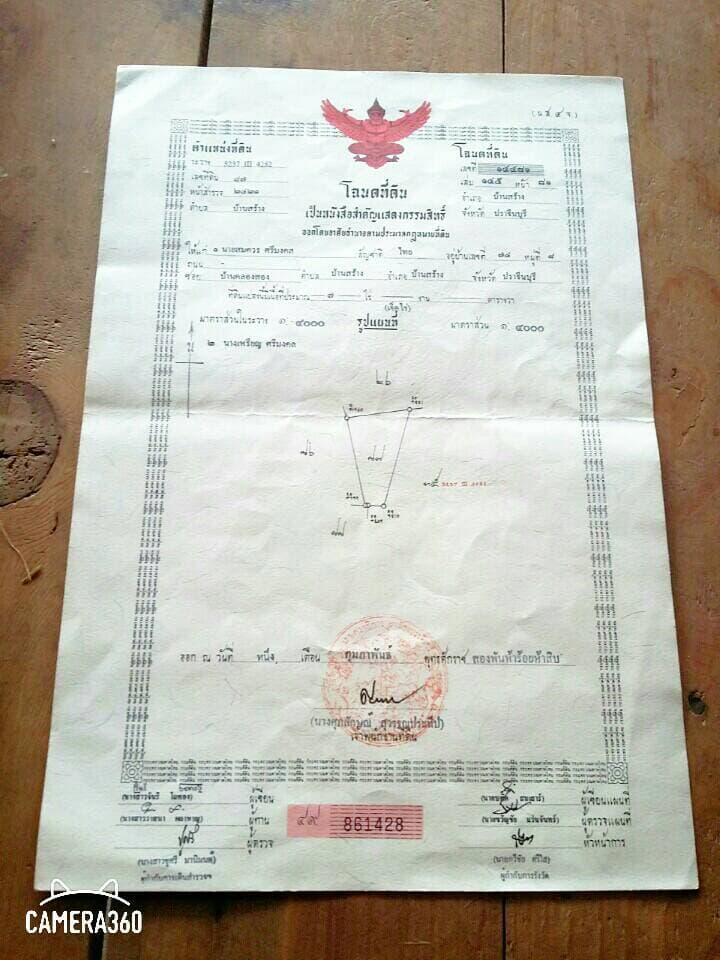 (น.ส. ๔ จ)
ตำแหน่งที่ดิน
ระวาง 5237 III 4262
เลขที่ดิน ๔๗
หน้าสำรวจ ๒๔๒๑
ตำบล บ้านสร้าง
โฉนดที่ดิน
เลขที่ ๑๔๔๘๑
เล่ม ๑๔๕ หน้า ๘๑
อำเภอ บ้านสร้าง
จังหวัด ปราจีนบุรี
โฉนดที่ดิน
เป็นหนังสือสำคัญแสดงกรรมสิทธิ์
ออกโดยอาศัยอำนาจตามประมวลกฎหมายที่ดิน
ให้แก่ ๑ นายสมควร ศรีมงคล สัญชาติ ไทย อยู่บ้านเลขที่ ๗๘ หมู่ที่ ๘
ถนน -
ซอย บ้านคลองสอง ตำบล บ้านสร้าง อำเภอ บ้านสร้าง จังหวัด ปราจีนบุรี
ที่ดินแปลงนี้มีเนื้อที่ประมาณ ๗ ไร่ งาน ตารางวา
(เจ็ดไร่)
มาตราส่วนในระวาง ๑:๔๐๐๐ รูปแผนที่ มาตราส่วน ๑:๔๐๐๐
น
๒ นางเพรียญ ศรีมงคล
๒๖
๗๖
๔๗
5237 III 4262
๗๗
ออก ณ วันที่ หนึ่ง เดือน กุมภาพันธ์ พุทธศักราช สองพันห้าร้อยห้าสิบ
(นางศุภลักษณ์ สุวรรณประทีป)
เจ้าพนักงานที่ดิน
ผู้เขียน
ผู้ทาน
ผู้ตรวจ
ผู้กำกับการเดินสำรวจฯ
๔๙ 861428
ผู้เขียนแผนที่
ผู้ตรวจแผนที่
หัวหน้าการ
(นายทวีชัย ศรีใส)
ผู้กำกับการรังวัด
CAMERA360